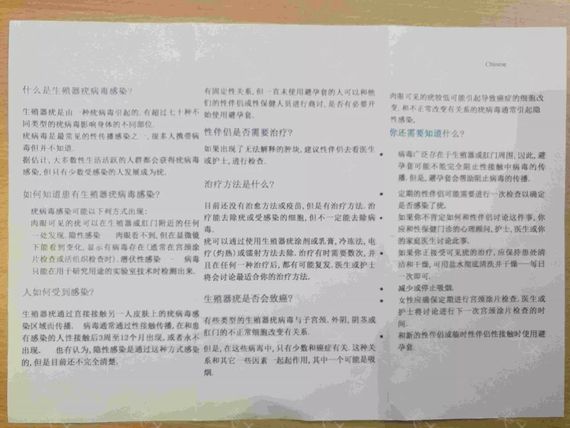 Chinese
什么是生殖器疣病毒感染?
生殖器疣是由一种疣病毒引起的, 有超过七十种不
同类型的疣病毒影响身体的不同部位.
疣病毒是最常见的性传播感染之一, 很多人携带病
毒但并不知道.
据估计, 大多数性生活活跃的人群都会获得疣病毒
感染, 但只有少数受感染的人发展成为疣.
如何知道患有生殖器疣病毒感染?
疣病毒感染可能以下列方式出现:
肉眼可见的疣可以在生殖器或肛门附近的任何
一处发现. 隐性感染 一 肉眼看不到, 但在显微镜
下能看到变化, 显示有病毒存在(通常在宫颈涂
片检查或活组织检查时). 潜伏性感染 一 病毒
只能在用于研究用途的实验室技术时检测出来.
人如何受到感染?
生殖器疣通过直接接触另一人皮肤上的疣病毒感
染区域而传播. 病毒通常通过性接触传播, 在和患
有感染的人性接触后3周至12个月出现, 或者永不
出现. 也有认为, 隐性感染是通过这种方式感染
的, 但是目前还不完全清楚.
有固定性关系, 但一直未使用避孕套的人可以和他
们的性伴侣或性保健人员进行商讨, 是否有必要开
始使用避孕套.
性伴侣是否需要治疗?
如果出现了无法解释的肿块, 建议性伴侣去看医生
或护士, 进行检查.
治疗方法是什么?
目前还没有治愈方法或疫苗, 但是有治疗方法. 治
疗能去除疣或受感染的细胞, 但不一定能去除病
毒.
疣可以通过使用生殖器疣涂剂或乳膏, 冷冻法, 电
疗(灼热)或镭射方法去除. 治疗有时需要数次, 并
且在任何一种治疗后, 都有可能复发. 医生或护士
将会讨论最适合您的治疗方法.
生殖器疣是否会致癌?
有些类型的生殖器疣病毒与子宫颈, 外阴, 阴茎或
肛门的不正常细胞改变有关系.
但是, 在这些病毒中, 只有少数和癌症有关. 这种关
系和其它一些因素一起起作用, 其中一个可能是吸
烟.
肉眼可见的疣较低可能引起导致癌症的细胞改
变, 和不正常改变有关系的疣病毒通常引起隐
性感染.
你还需要知道什么?
• 病毒广泛存在于生殖器或肛门周围, 因此, 避
孕套可能不能完全阻止性接触中病毒的传
播, 但是, 避孕套会帮助阻止病毒的传播.
• 定期的性伴侣可能需要进行一次检查以确定
是否感染了疣.
• 如果你不肯定如何和性伴侣讨论这件事, 你
应和性保健门诊的心理顾问, 护士, 医生或你
的家庭医生讨论此事.
• 如果你正接受可见疣的治疗, 应保持患处清
洁和干燥, 可用盐水彻底清洗并干燥——每日
一次即可.
• 减少或停止吸烟.
• 女性应确保定期进行宫颈涂片检查, 医生或
护士将讨论进行下一次宫颈涂片检查的时
间.
• 和新的性伴侣或临时性伴侣性接触时使用避
孕套.